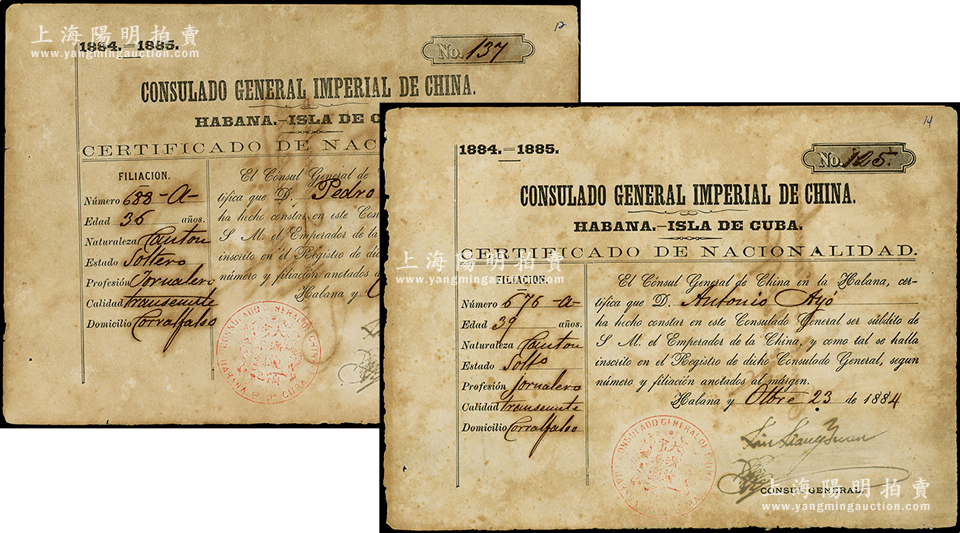 上海陽明拍賣
www.yangmingauction.com
1884.–1885.
12
No. 137
CONSULADO GENERAL IMPERIAL DE CHINA.
HABANA.–ISLA DE C
CERTIFICADO DE NAC
FILIACION.
Número 688-A-
Edad 36 años.
Naturaleza Canton
Estado Soltero
Profesión Jornalero
Calidad transeunte
Domicilio Corralfalso
El Cónsul General de
tifica que D. Pedro
ha hecho constar en este Con
S. M. el Emperador de la
inscrito en el Registro de dic
número y filiación anotados a
Habana y
1884.–1885.
14
No. 125.
CONSULADO GENERAL IMPERIAL DE CHINA.
HABANA.–ISLA DE CUBA.
CERTIFICADO DE NACIONALIDAD.
FILIACION.
Número 676-A-
Edad 39 años.
Naturaleza Canton
Estado Solto
Profesión Jornalero
Calidad transeunte
Domicilio Corralfalso
El Cónsul General de China en la Habana, cer-
tifica que D. Antonio Ayó
ha hecho constar en este Consulado General ser súbdito de
S. M. el Emperador de la China, y como tal se halla
inscrito en el Registro de dicho Consulado General, segun
número y filiación anotados al márgen.
Habana y Otbre 23 de 1884
Liu Liang Yuan
CONSUL GENERAL.
上海陽明拍賣
www.yangmingauction.com
上海陽明拍賣
www.yangmingauction.com